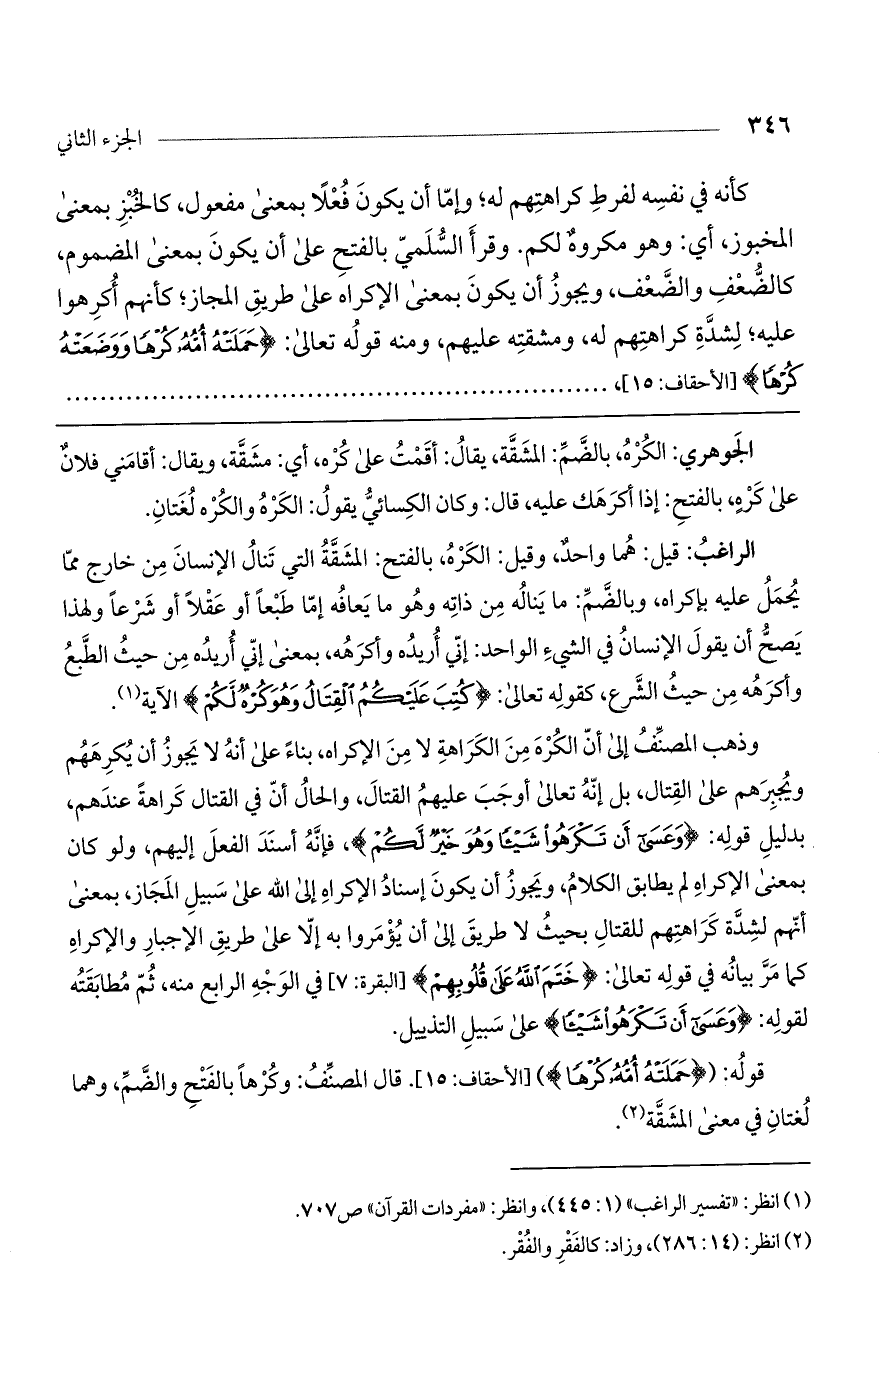 ٣٤٦ الجزء الثاني
كأنه في نفسِه لفرطِ كراهتِهم له؛ وإمّا أن يكونَ فُعْلًا بمعنىٰ مفعول، كالخُبْزِ بمعنىٰ
المخبوز، أي: وهو مكروهٌ لكم. وقرأَ السُّلَميّ بالفتحِ علىٰ أن يكونَ بمعنىٰ المضموم،
كالضُّعْفِ والضَّعْف، ويجوزُ أن يكونَ بمعنىٰ الإكراه علىٰ طريقِ المجاز؛ كأنهم أُكرِهوا
عليه؛ لِشدَّةِ كراهتِهم له، ومشقتِه عليهم، ومنه قولُه تعالىٰ: ﴿حَمَلَتْهُ أُمُّهُۥ كُرْهًا وَوَضَعَتْهُ
كُرْهًا﴾ [الأحقاف: ١٥]، ............................................................
الجَوهري: الكُرْهُ، بالضَّمِّ: المشقَّة، يقالُ: أقَمْتُ علىٰ كُرْه، أي: مشَقَّة، ويقال: أقامَني فلانٌ
علىٰ كَرْهٍ، بالفتحِ: إذا أكرَهَك عليه، قال: وكان الكِسائيُّ يقولُ: الكَرْهُ والكُرْه لُغَتانِ.
الراغبُ: قيل: هُما واحدٌ، وقيل: الكَرْهُ، بالفتح: المشَقَّةُ التي تَنالُ الإنسانَ مِن خارج ممّا
يُحمَلُ عليه بإكراه، وبالضَّمِّ: ما يَنالُه مِن ذاتِه وهُو ما يَعافُه إمّا طَبْعاً أو عَقْلاً أو شَرْعاً ولهذا
يَصحُّ أن يقولَ الإنسانُ في الشيءِ الواحد: إنّي أُريدُه وأكرَهُه، بمعنىٰ إنّي أُريدُه مِن حيثُ الطَّبعُ
وأكرَهُه مِن حيثُ الشَّرع، كقولِه تعالىٰ: ﴿كُتِبَ عَلَيْكُمُ ٱلْقِتَالُ وَهُوَ كُرْهٌ لَّكُمْ﴾ الآية(١).
وذهب المصنِّفُ إلىٰ أنّ الكُرْهَ مِنَ الكَرَاهةِ لا مِنَ الإكراه، بناءً علىٰ أنهُ لا يَجوزُ أن يُكرِهَهُم
ويُجبِرَهم علىٰ القِتال، بل إنّهُ تعالىٰ أوجَبَ عليهمُ القتالَ، والحالُ أنّ في القتال كَراهةً عندَهم،
بدليلِ قولِه: ﴿وَعَسَىٰٓ أَن تَكْرَهُوا۟ شَيْـًٔا وَهُوَ خَيْرٌ لَّكُمْ﴾، فإنَّهُ أسندَ الفعلَ إليهم، ولو كان
بمعنىٰ الإكراهِ لم يطابق الكلامُ، ويَجوزُ أن يكونَ إسنادُ الإكراهِ إلىٰ الله علىٰ سَبيلِ المَجَاز، بمعنىٰ
أنّهم لشِدَّة كَرَاهتِهم للقتالِ بحيثُ لا طريقَ إلىٰ أن يُؤْمَروا به إلّا علىٰ طريقِ الإجبارِ والإكراهِ
كما مَرَّ بيانُه في قولِه تعالىٰ: ﴿خَتَمَ ٱللَّهُ عَلَىٰ قُلُوبِهِمْ﴾ [البقرة: ٧] في الوَجْهِ الرابع منه، ثُمّ مُطابَقَتُه
لقولِه: ﴿وَعَسَىٰٓ أَن تَكْرَهُوا۟ شَيْـًٔا﴾ علىٰ سَبيلِ التذييل.
قولُه: (﴿حَمَلَتْهُ أُمُّهُۥ كُرْهًا﴾) [الأحقاف: ١٥]. قال المصنِّفُ: وكُرْهاً بالفَتْحِ والضَّمِّ، وهما
لُغتانِ في معنىٰ المشقَّة(٢).
(١) انظر: «تفسير الراغب» (١: ٤٤٥)، وانظر: «مفردات القرآن» ص٧٠٧.
(٢) انظر: (١٤: ٢٨٦)، وزاد: كالفَقْرِ والفُقْر.